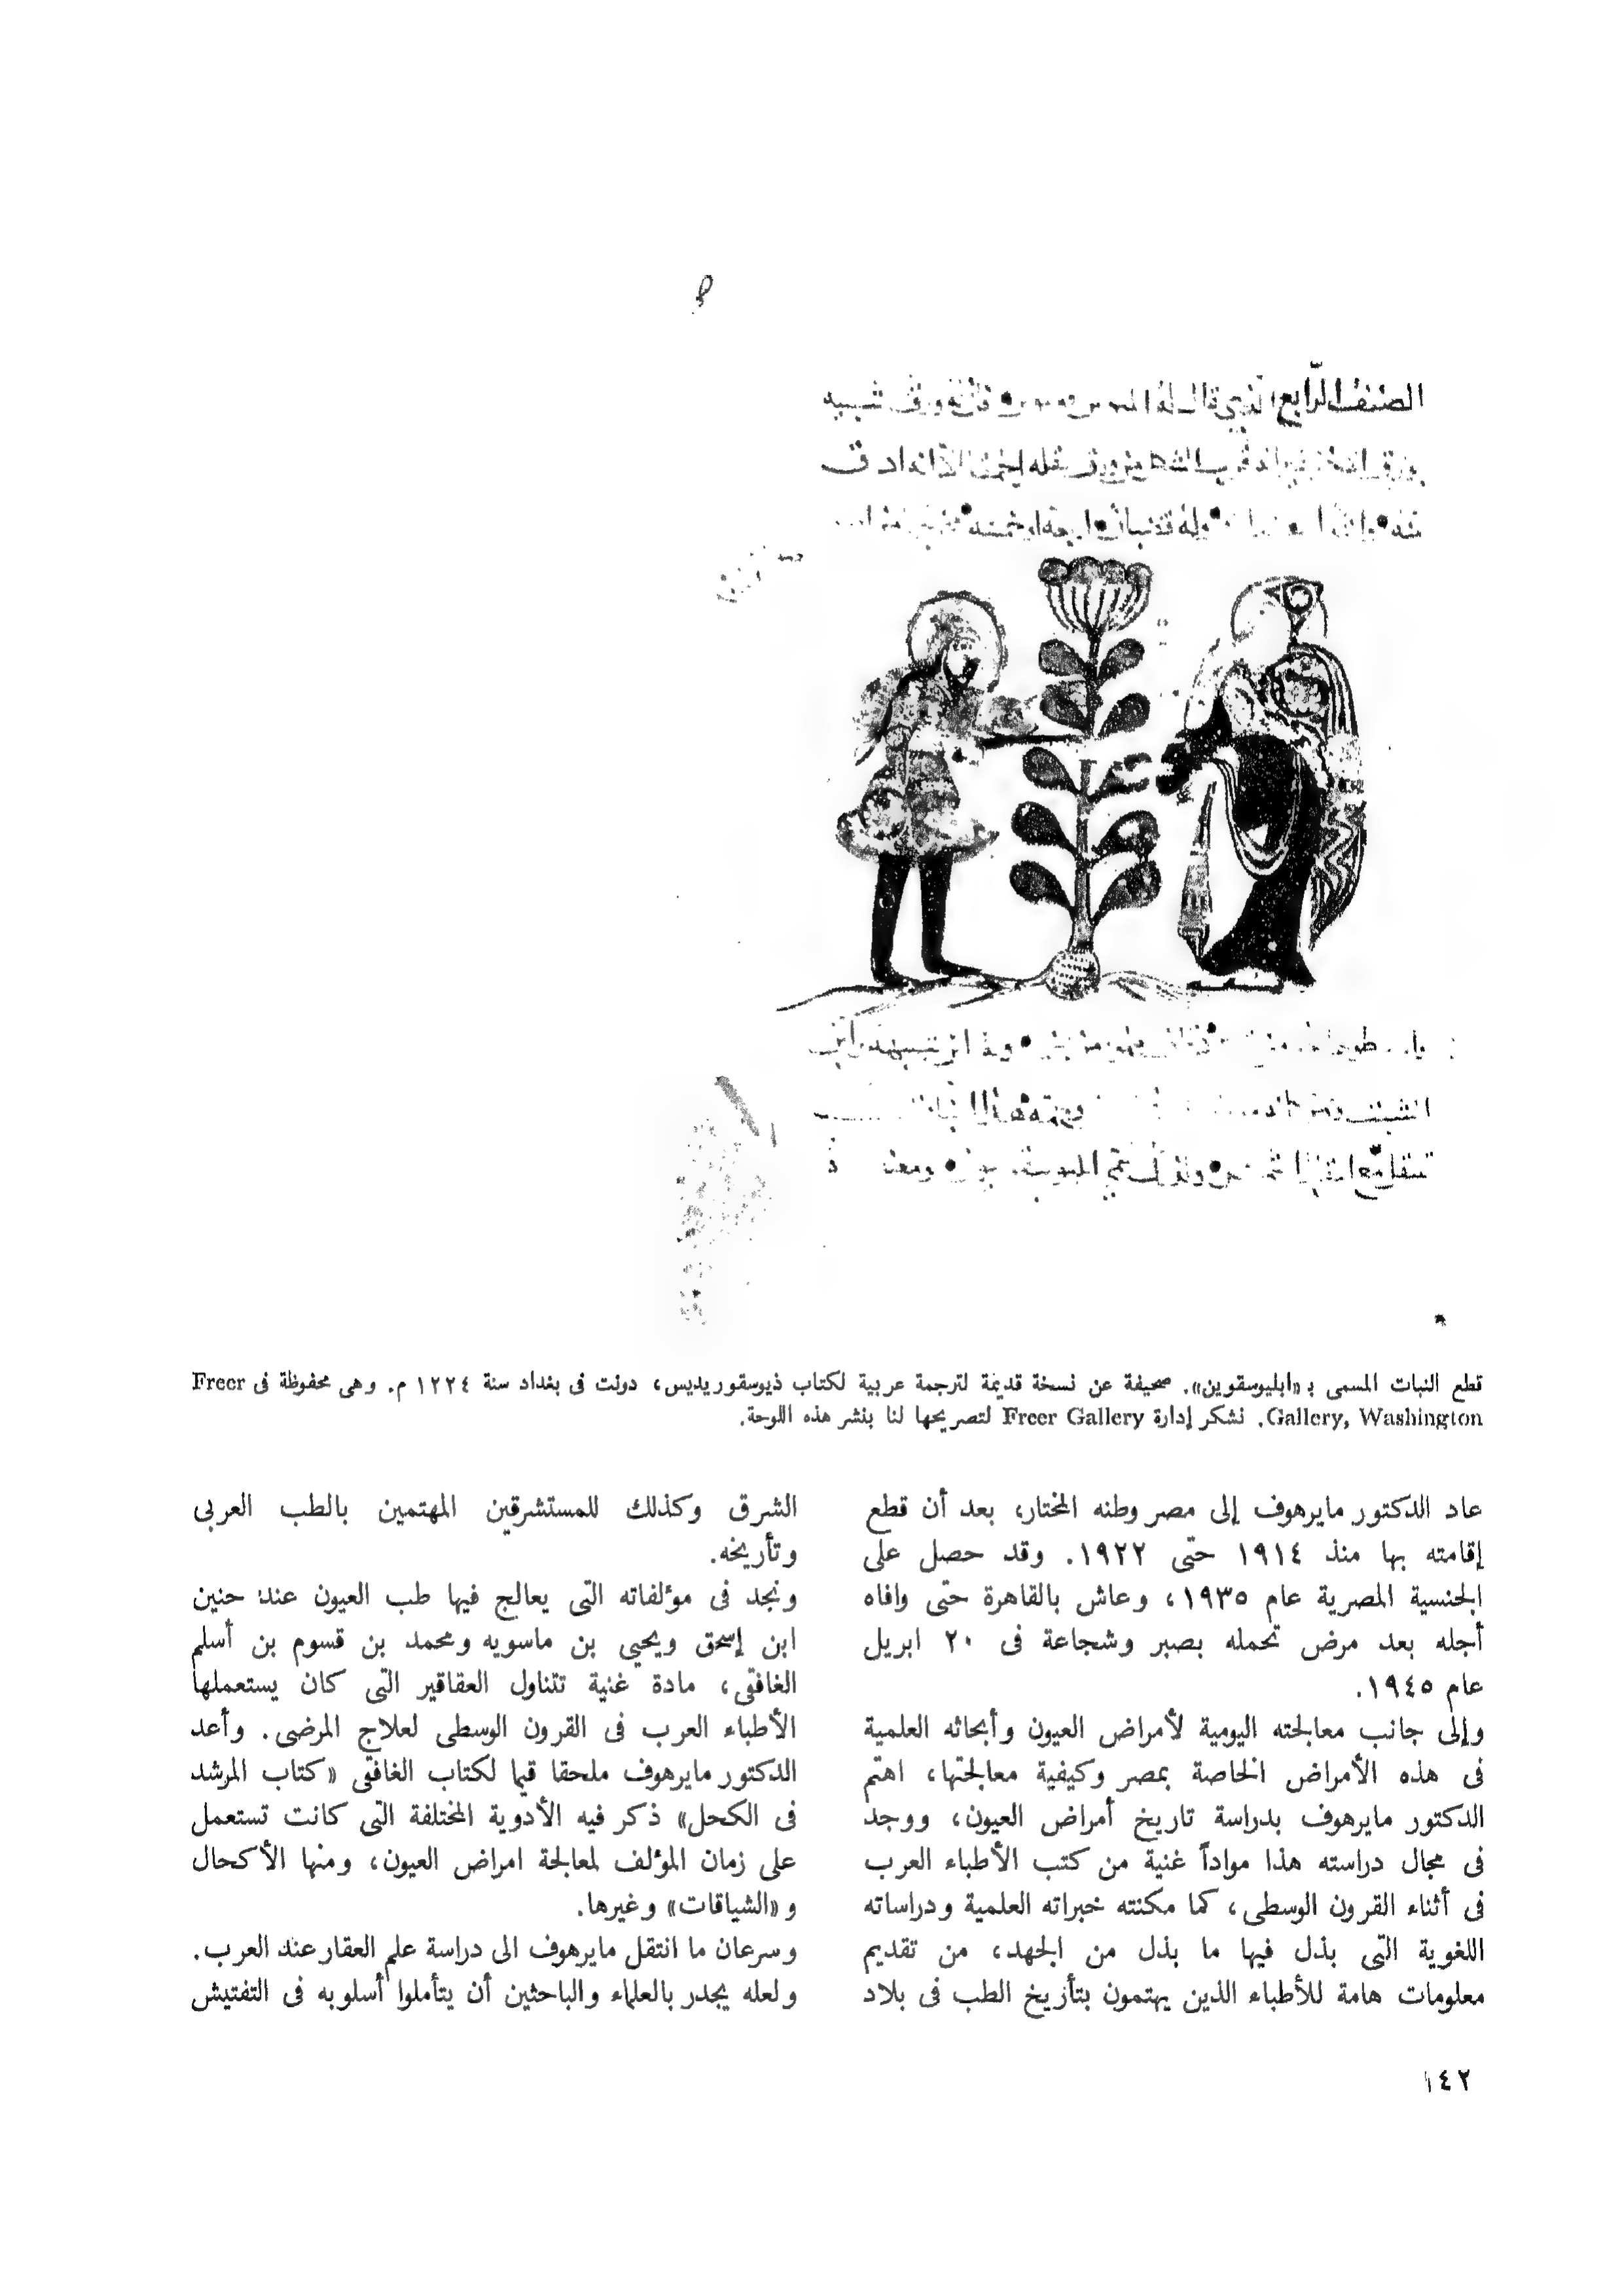 الصنف الرابع
قطع النبات المسمى بـ «ابليوسقوين». صحيفة عن نسخة قديمة لترجمة عربية لكتاب ذيوسقوريديس، دونت فى بغداد سنة ١٢٢٤ م. وهى محفوظة فى Freer
Gallery, Washington. نشكر إدارة Freer Gallery لتصريحها لنا بنشر هذه اللوحة.
عاد الدكتور مايرهوف إلى مصر وطنه المختار، بعد أن قطع
إقامته بها منذ ١٩١٤ حتى ١٩٢٢. وقد حصل على
الجنسية المصرية عام ١٩٣٥، وعاش بالقاهرة حتى وافاه
أجله بعد مرض تحمله بصبر وشجاعة فى ٢٠ ابريل
عام ١٩٤٥.
وإلى جانب معالجته اليومية لأمراض العيون وأبحاثه العلمية
فى هذه الأمراض الخاصة بمصر وكيفية معالجتها، اهتم
الدكتور مايرهوف بدراسة تاريخ أمراض العيون، ووجد
فى مجال دراسته هذا مواداً غنية من كتب الأطباء العرب
فى أثناء القرون الوسطى، كما مكنته خبراته العلمية ودراساته
اللغوية التى بذل فيها ما بذل من الجهد، من تقديم
معلومات هامة للأطباء الذين يهتمون بتأريخ الطب فى بلاد
الشرق وكذلك للمستشرقين المهتمين بالطب العربى
وتأريخه.
ونجد فى مؤلفاته التى يعالج فيها طب العيون عند حنين
ابن إسحق ويحيى بن ماسويه ومحمد بن قسوم بن أسلم
الغافقى، مادة غنية تتناول العقاقير التى كان يستعملها
الأطباء العرب فى القرون الوسطى لعلاج المرضى. وأعد
الدكتور مايرهوف ملحقا قيما لكتاب الغافقى «كتاب المرشد
فى الكحل» ذكر فيه الأدوية المختلفة التى كانت تستعمل
على زمان المؤلف لمعالجة امراض العيون، ومنها الأكحال
و«الشياقات» وغيرها.
وسرعان ما انتقل مايرهوف الى دراسة علم العقار عند العرب.
ولعله يجدر بالعلماء والباحثين أن يتأملوا أسلوبه فى التفتيش
١٤٢